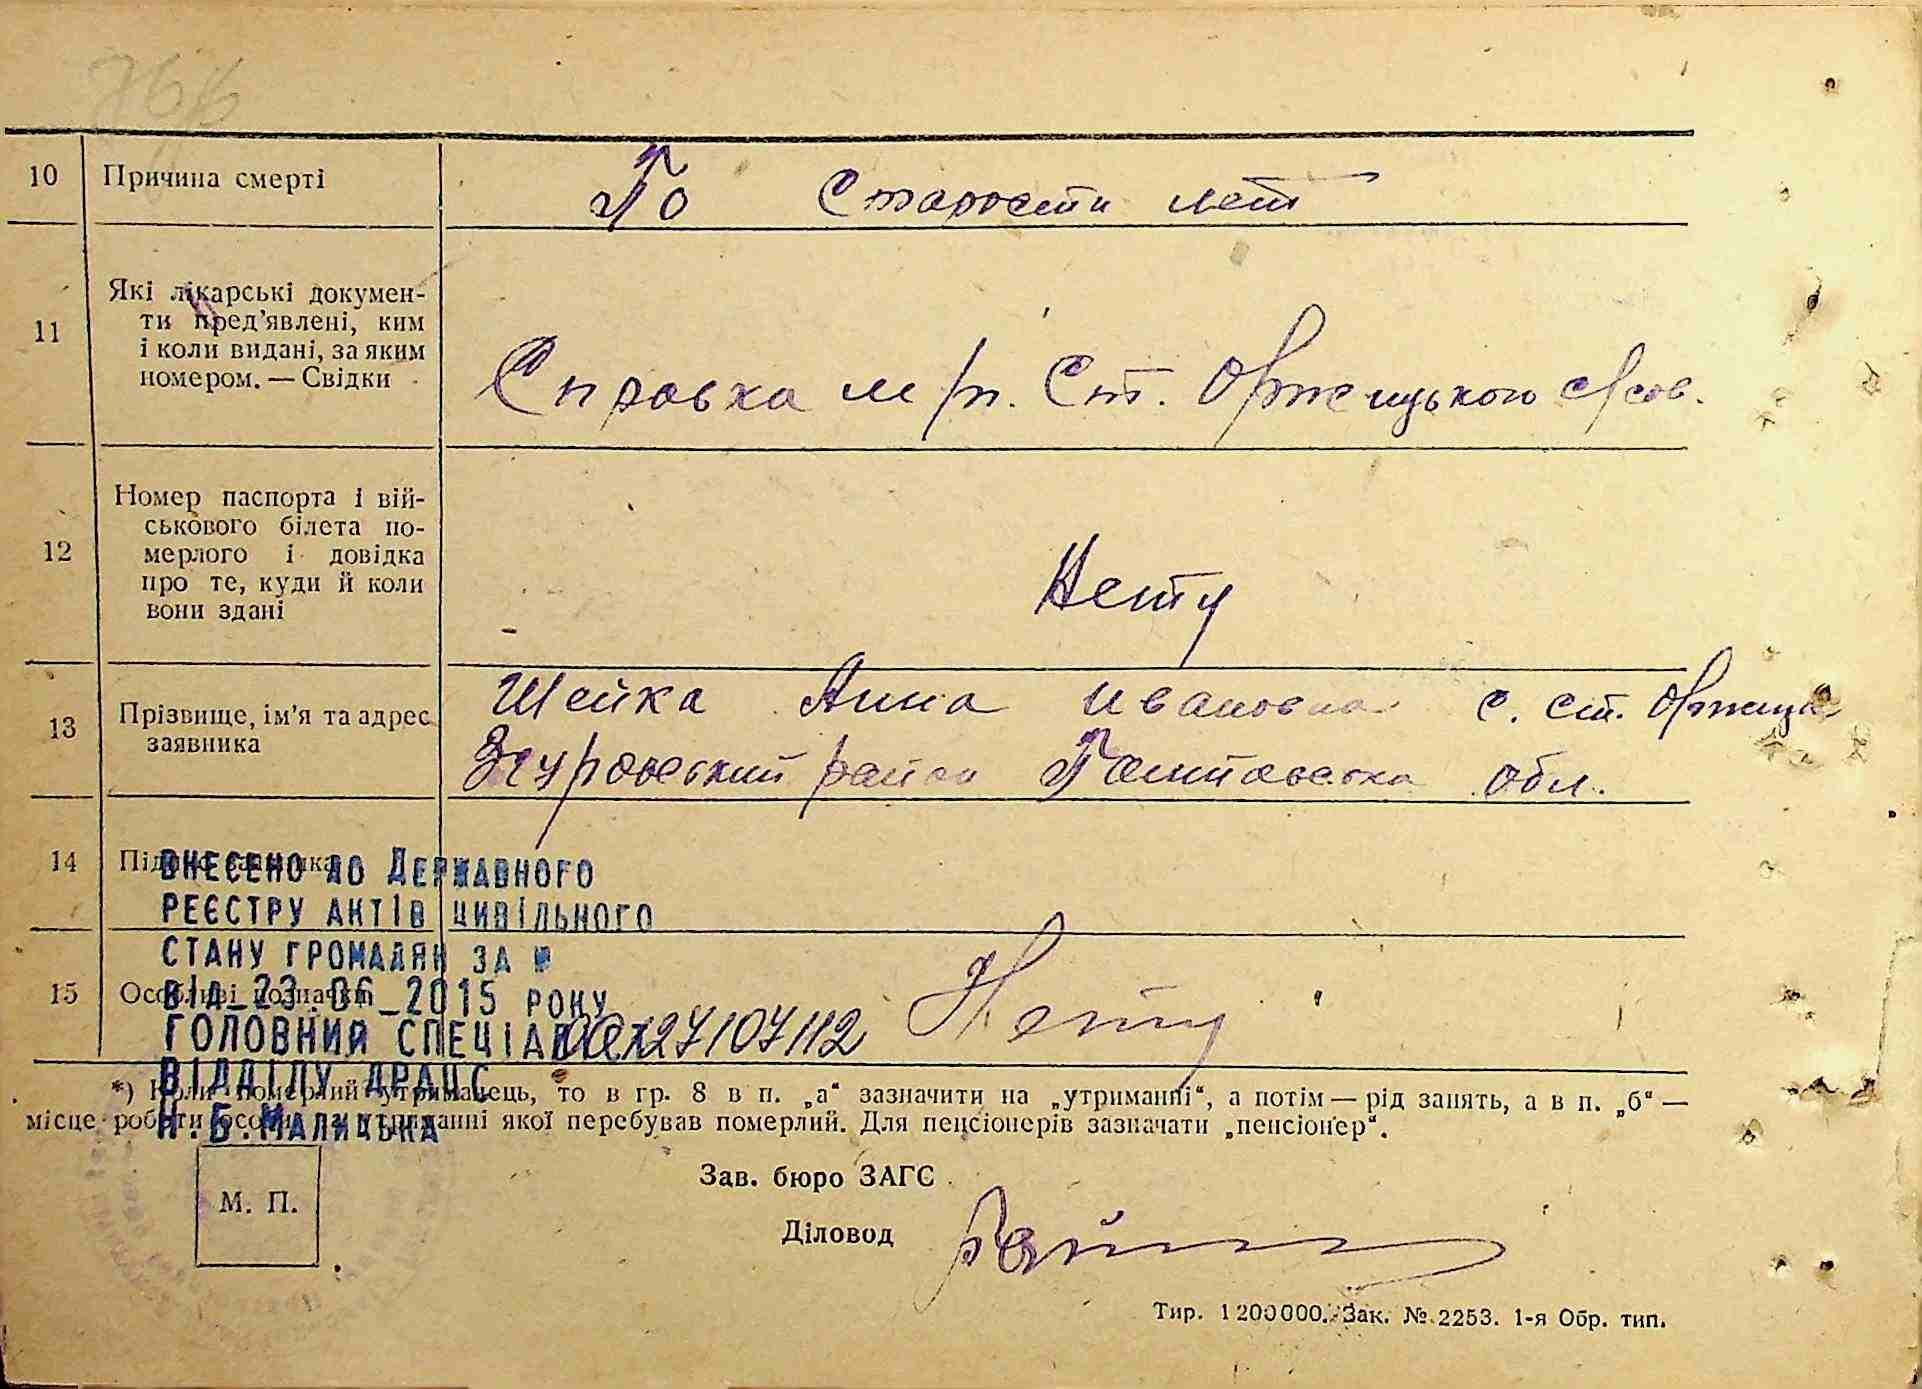 10 Причина смерті По Старости лет
11 Які лікарські докумен-
ти пред'явлені, ким
і коли видані, за яким
номером. — Свідки
Справка м/п. Ст. Оржицького с/сов.
12 Номер паспорта і вій-
ськового білета по-
мерлого і довідка
про те, куди й коли
вони здані
Нету
13 Прізвище, ім'я та адрес
заявника
Шейка Анна Ивановна с. Ст. Оржица
Згуровский район Полтавска обл.
14
ВНЕСЕНО ДО ДЕРЖАВНОГО
РЕЄСТРУ АКТІВ ЦИВІЛЬНОГО
СТАНУ ГРОМАДЯН ЗА №
15 Особливі позначки Нету
ВІД_23.06_2015 РОКУ
ГОЛОВНИЙ СПЕЦІАЛІСТ
ВІДДІЛУ ДРАЦС
Н.Б.МАЛИЦЬКА
*) Коли померлий утриманець, то в гр. 8 в п. „а“ зазначити на „утриманні“, а потім — рід занять, а в п. „б“ —
місце роботи особи, на утриманні якої перебував померлий. Для пенсіонерів зазначати „пенсіонер“.
М. П.
Зав. бюро ЗАГС
Діловод
Тир. 1200000. Зак. № 2253. 1-я Обр. тип.